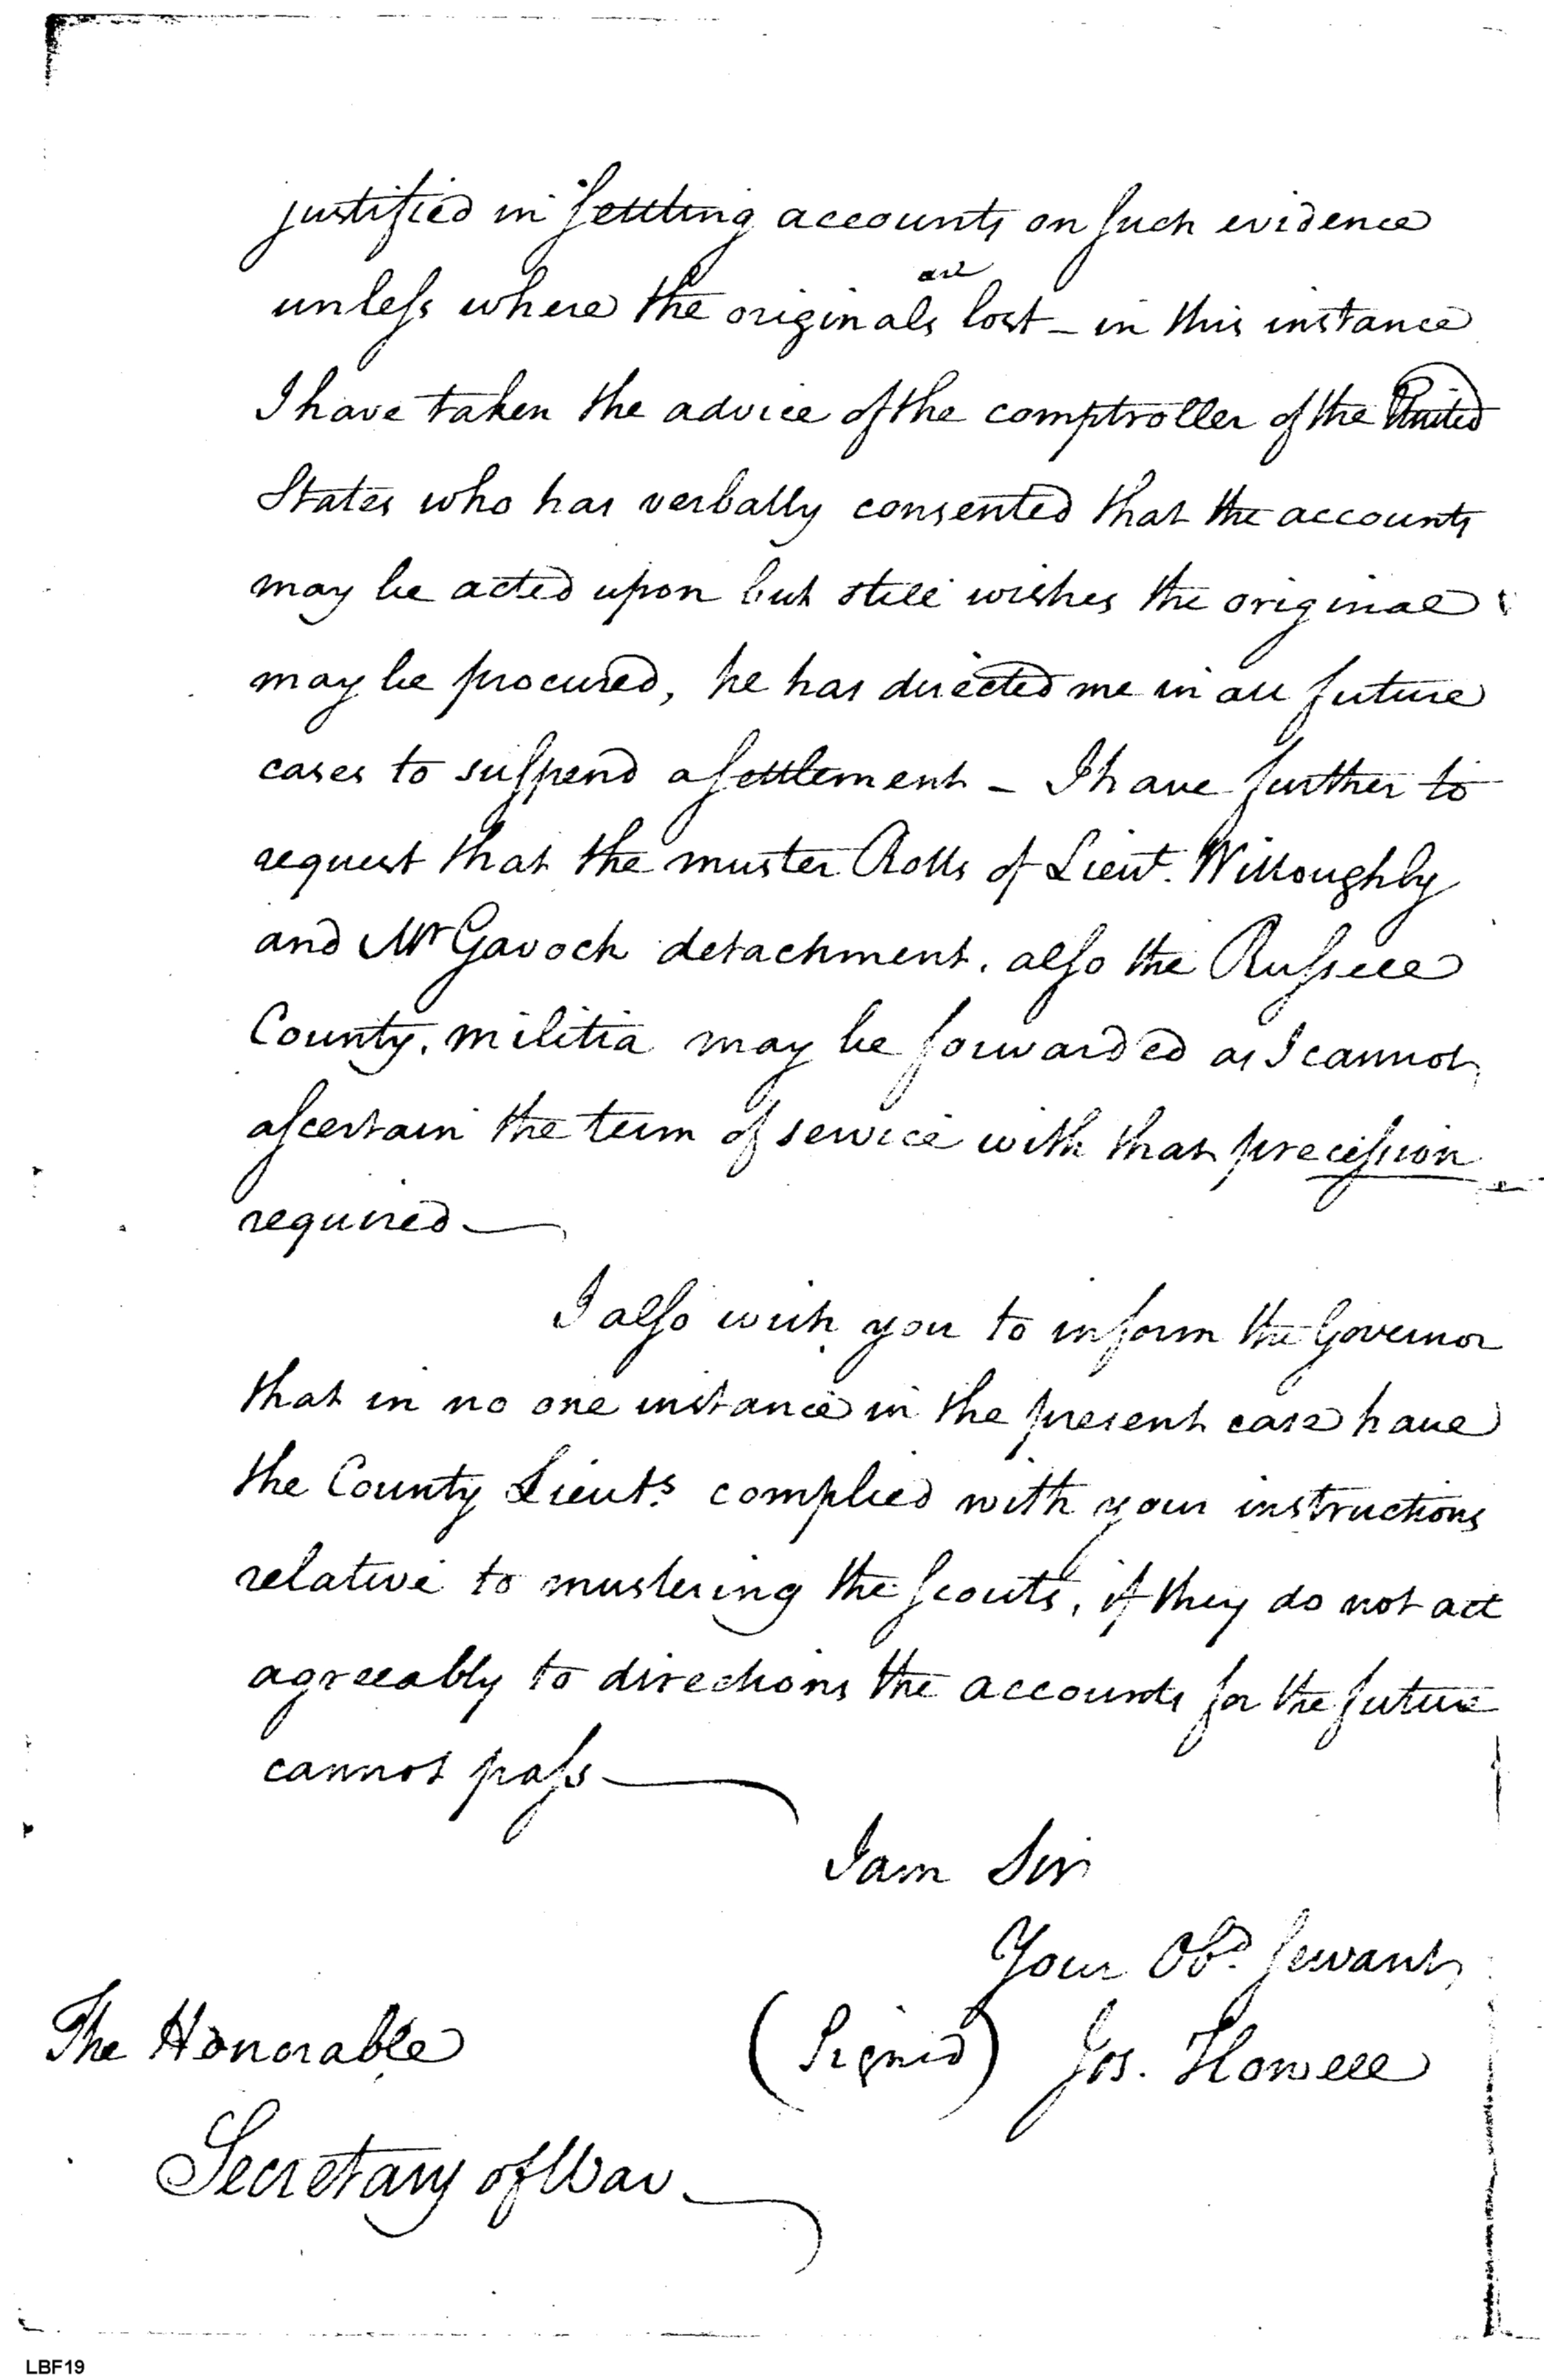 justified in settling accounts on such evidence
unless where the originals are lost – in this instance
I have taken the advice of the comptroller of the United
States who has verbally consented that the accounts
may be acted upon but still wishes the original
may be procured, he has directed me in all future
cases to suspend a settlement – I have further to
request that the muster Rolls of Lieut. Willoughby
and McGavock detachment. also the Russell
County. militia may be forwarded as I cannot
ascertain the term of service with that precission
required —
I also wish you to inform the Governor
that in no one instance in the present case have
the County Lieuts. complied with your instructions
relative to mustering the scouts, if they do not act
agreeably to directions the accounts for the future
cannot pass —
I am Sir
Your Obd. servant
(Signed) Jos. Howell
The Honorable
Secretary of War
LBF19